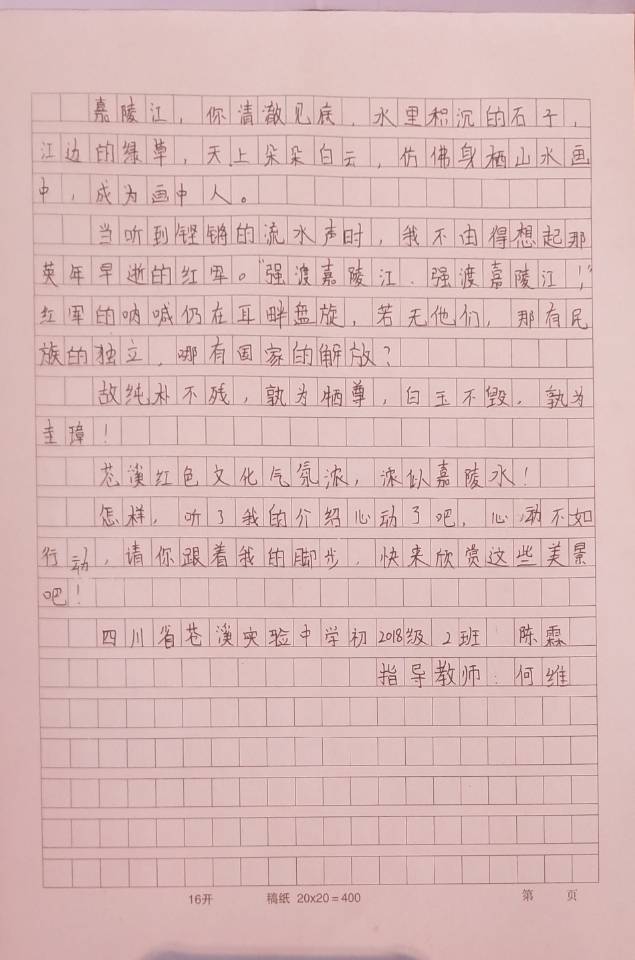 嘉陵江，你清澈见底，水里积沉的石子，
江边的绿草，天上朵朵白云，仿佛身栖山水画
中，成为画中人。
当听到铿锵的流水声时，我不由得想起那
英年早逝的红军。“强渡嘉陵江，强渡嘉陵江！”
红军的呐喊仍在耳畔盘旋，若无他们，那有民
族的独立，哪有国家的解放？
故纯朴不残，孰为牺尊，白玉不毁，孰为
圭璋！
苍溪红色文化气氛浓，浓似嘉陵水！
怎样，听了我的介绍心动了吧，心动不如
行动，请你跟着我的脚步，快来欣赏这些美景
吧！
四川省苍溪实验中学初2018级2班 陈霖
指导教师：何维
16开 稿纸 20x20=400 第 页